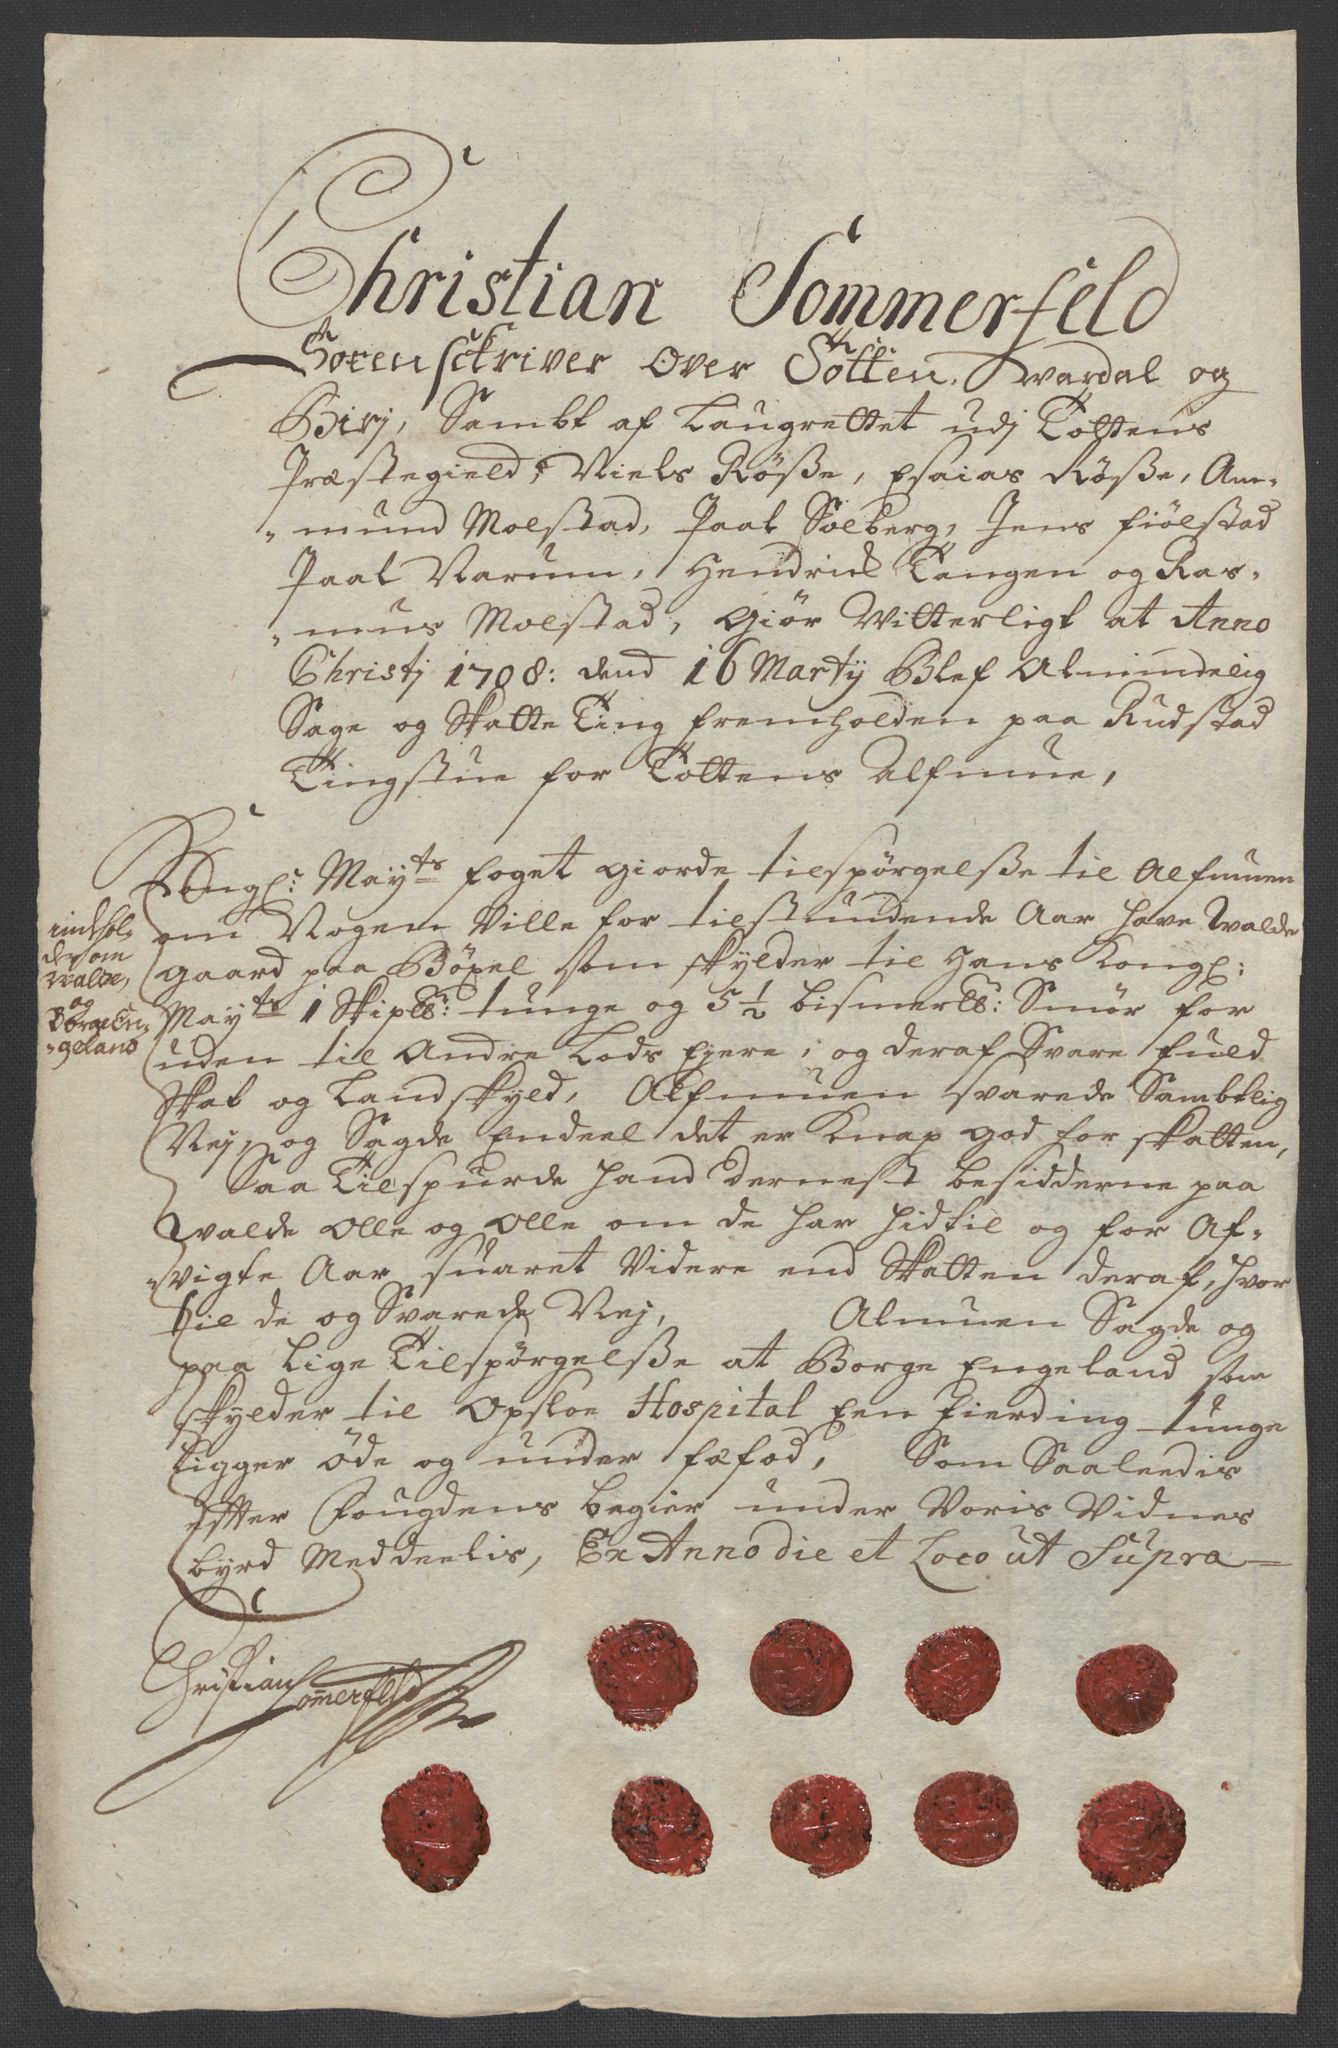 Christian Sommerfeld
Sorenschriver over Totten, Wardal og
Birj, Sambt af Laugrettet udj Tottens
Præstegield, Niels Røsße, Esaias Røsße, Am-
-mund Molstad, Paal Solberg, Jens fiølstad
Paal Narum, Hendrick Tangen og Ras-
-mus Molstad, Giør Witterligt at Anno
Christj 1708: dend 16 Martij Blef Almindelig
Sage og Skatte Ting fremholden paa Rudstad
Tingstue for Tottens Alfmue,
Kongl: May:ts foget giorde tilspørgelsße til Alfmuen
om Nogen Ville for tilstundende Aar have Walde
gaard paa Bøxel som skylder til Hans Kongl:
May:ts 1 Skip℔: tunge og 5½ bismer℔: Smør for
uden til Andre Lods Ejere, og deraf Svare fuld
Skat og Landskyld, Alfmuen svarede Sambtlig
Nej, og Sagde Endeel det er Knap god for skatten,
Saa Tilspurde hand dernest besidderne paa
Walde Olle og Olle om de har hidtil og for Af-
-vigte Aar suaret Videre end Skatten deraf, hvor
til de og Svarede Nej, Almuen Sagde og
paa lige Tilspørgelsße at Borge Engeland som
skylder til Opsloe Hospital Een fierding tunge
ligger øde og under fæfod, Som Saaleedis
efter fougdens begier under Voris Vidnes
byrd Meddeelis, Ex Anno die et Loco ut Supra
indhol-
der om
Walde,
og
Borge En-
-geland
Christian Sommerfeld